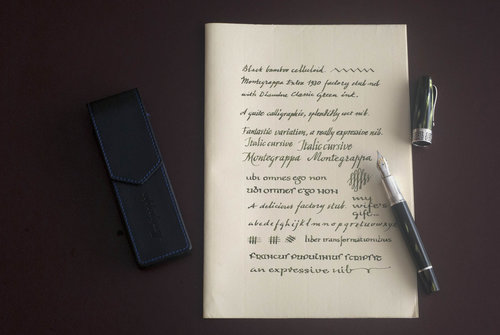 Black bamboo celluloid
Montegrappa Extra 1930 factory stub nib
with D'Iamine Classic Green ink.
A quite calligraphic, splendidly wet nib.
Fantastic variation, a really expressive nib.
Italic cursive Italic cursive
Montegrappa Montegrappa
ubi omnes ego non
ubi omnes ego non
A delicious factory stub.
my
wife's
gift
abcdefghijklmnopqrstuvwxyz
liber transformationibus
scripsit
an expressive nib